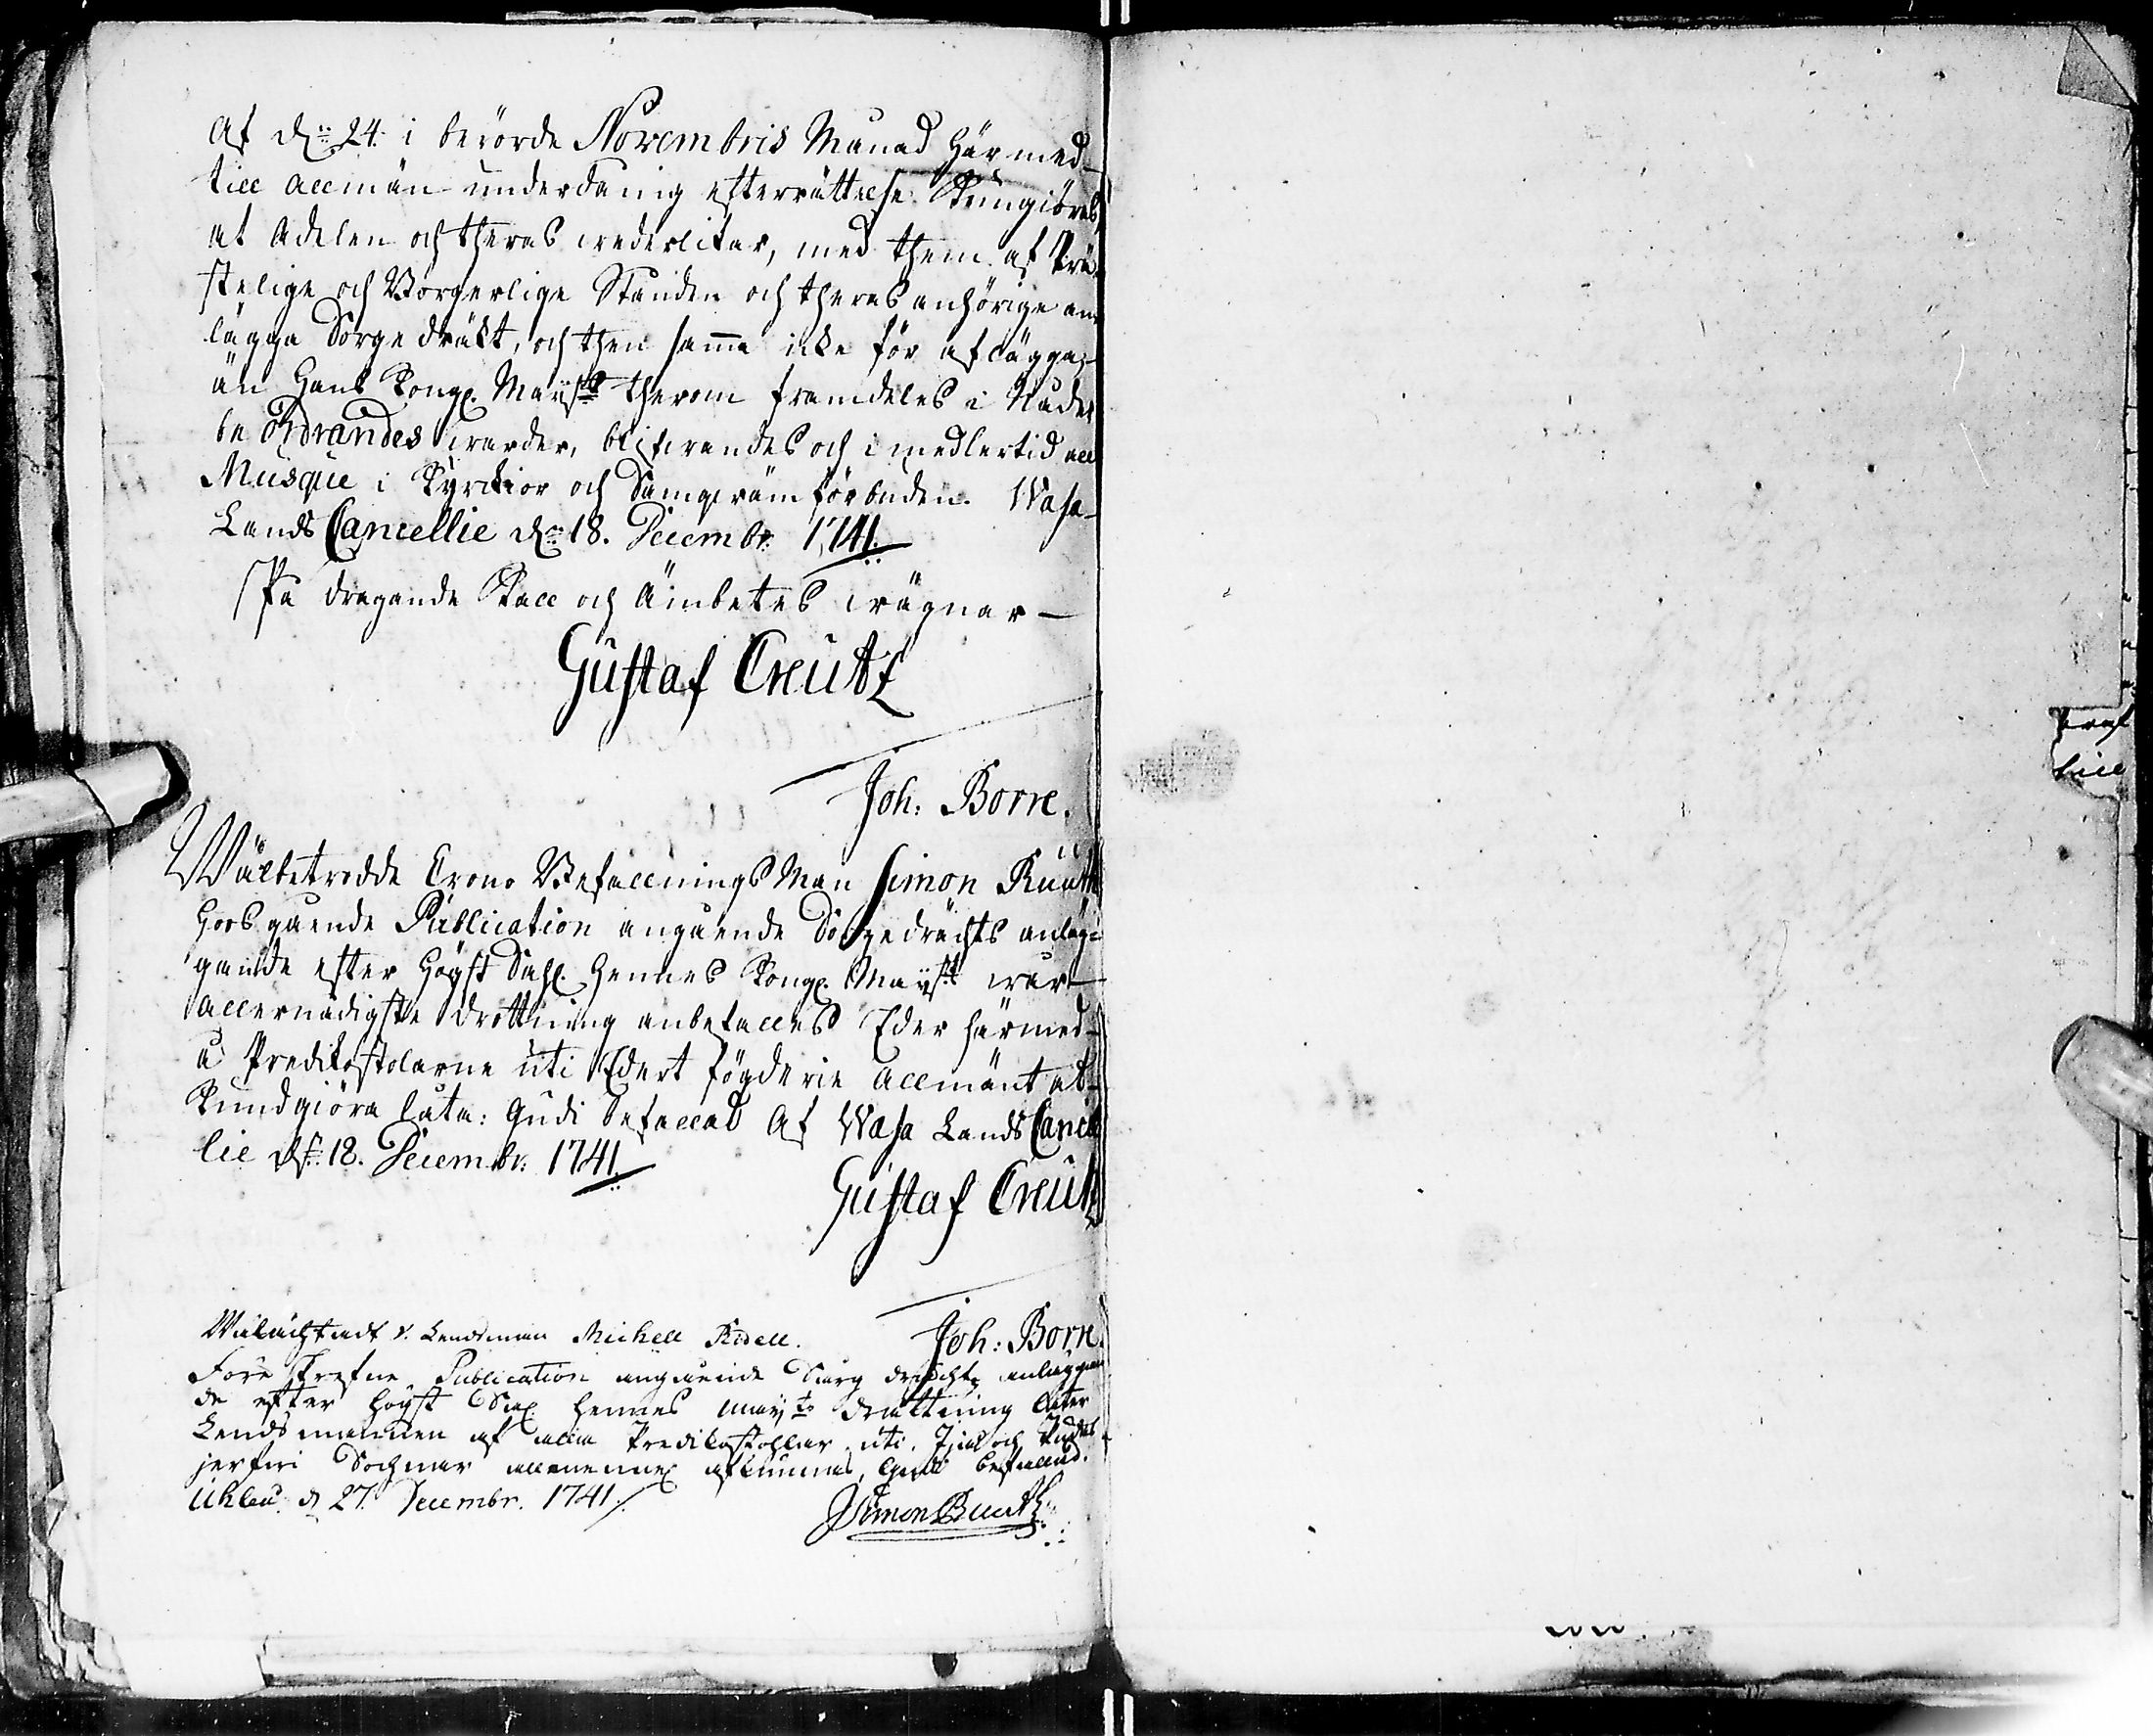 Af d:n 24. i berörde Novembris Månad Härmed
till allmän underdånig efterrättelse kungiöres,
at Adelen och theras wederlikar, med them af Prä-
stelige och Borgerlige Stånden och theras anhörige an-
lägga Sorgedräkt, och then samma icke för aflägga,
än Hans Kongl. Maij:tt therom framdeles i Nåder
be ordrandes warder, blifwandes och i medlertid all
Musique i Kyrckior och Samqwäm förbuden. Wasa
Lands Cancellie d:n 18. Decembr: 1741.
På dragande Kall och Ämbetes wägnar
Gustaf Creutz
Joh: Borre.
Wälbetrodde Crono Befallnings Man Simon Ruuth
Hosgående Publication angående Sorgedrächts anläg-
gande efter Högst Sahl. Hennes Kongl. Maij:tt wår
allernådigste Drottning anbefalles Eder härmed
å Predikostolarne uti Edert fögderie allmänt at
Kundgiöra låta: Gudi befallad Af Wasa Lands Cancel
lie d:n 18. Decembr: 1741.
Gustaf Creutz
Joh: Borre.
Wälachtadt v. Lendsman Michell Ridell.
Föreskrefne Publication angående Sårg drächtz anläggan
de efter högst Sal hennes maij:tz drottning låter
Lendsmannen af alla Predikostohlar uti. Ijo och Pudas-
jerfwi Sochnar afkunnas, Gudi befallad.
Uhleå d 27. Decembr. 1741
Simon Ruuth
till